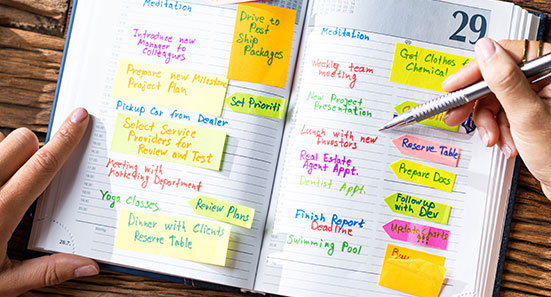 Meditation
Introduce new
Manager to
colleagues
Drive to
Post
Ship
Packages
Prepare new Milestone
Project Plan
Set Prioriti
Pickup Car from Dealer
Select Service
Providers for
Review and Test
Meeting with
Marketing Department
Yoga Classes
Review Plans
Dinner with Clients
Reserve Table
29
Meditation
Got Clothes
Chemical
Weekly team
meeting
New Project
Presentation
Lunch with new
Investors
Reserve Table
Real Estate
Agent Appt.
Prepare Docs
Dentist Appt.
Followup
with Dev
Finish Report
Deadline
Update Charts
Swimming Pool